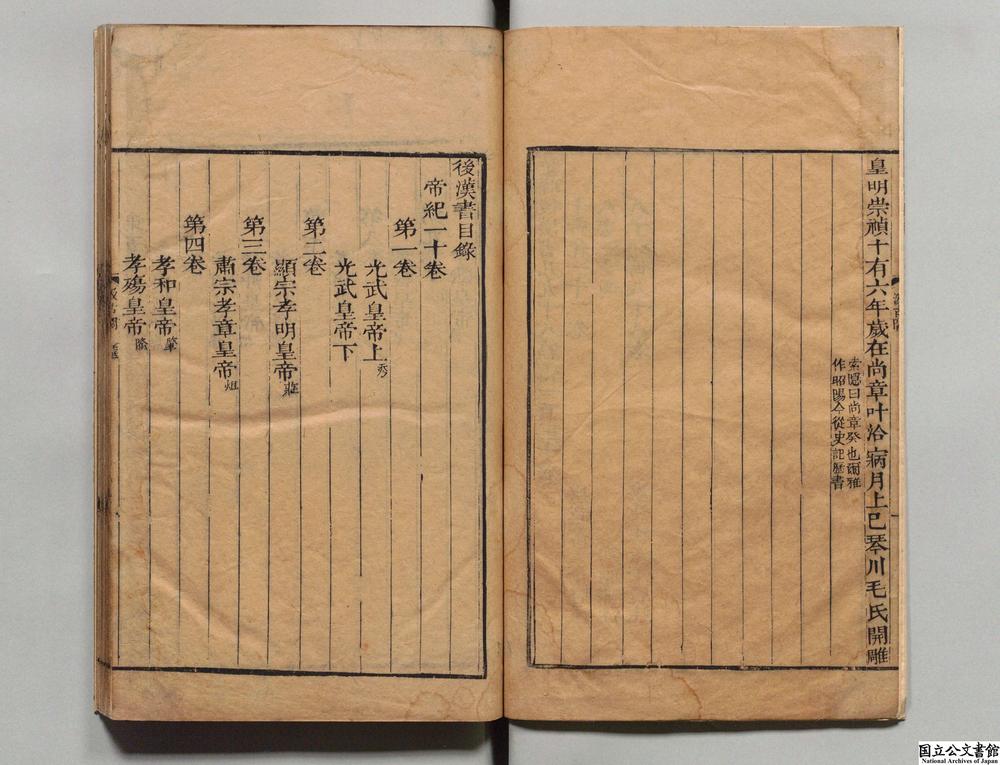 皇明崇禎十有六年歲在尚章叶洽寎月上巳琴川毛氏開雕
索隱曰尚章癸也爾雅
作昭陽今從史記曆書
後漢書目錄
帝紀一十卷
第一卷
光武皇帝上秀
光武皇帝下
第二卷
顯宗孝明皇帝莊
第三卷
肅宗孝章皇帝炟
第四卷
孝和皇帝肇
孝殤皇帝隆
国立公文書館
National Archives of Japan